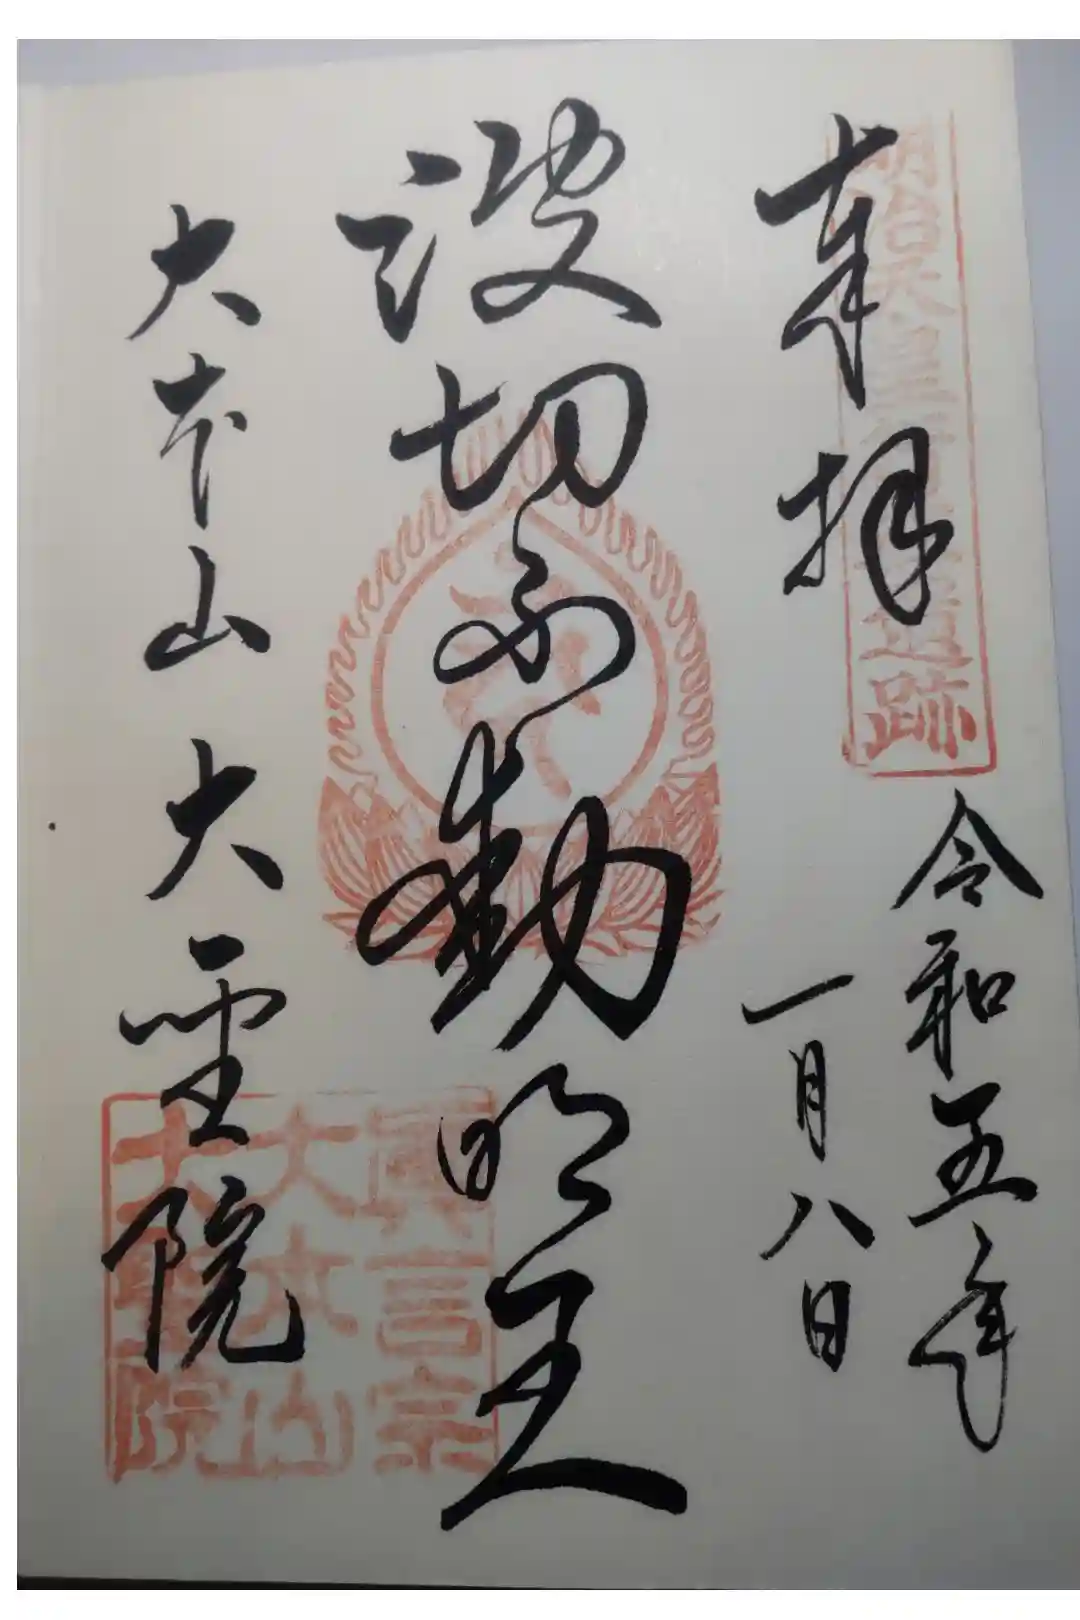 奉拝
明治天皇
遺跡
令和五年
一月八日
波切不動明王
大本山大聖院
真言宗
大本山
大聖院